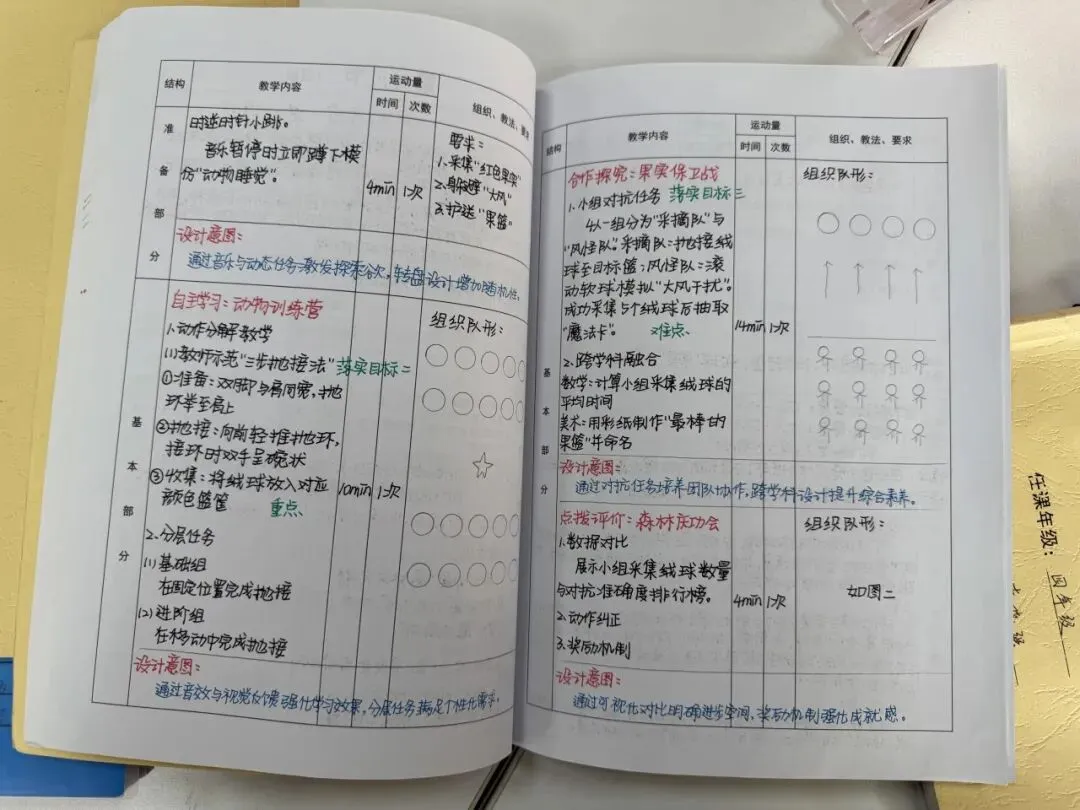 结构
教学内容
运动量
时间 次数
组织、教法、要求
准备部分
时逆时针小跳。
音乐暂停时立即蹲下模
仿“动物睡觉”。
4min 1次
要求:
1.采集“红色果实”
2.躲避“大风”
3.护送“果篮”
设计意图:
通过音乐与动态任务激发探索欲,转盘设计增加随机性。
基本部分
自主学习:动物训练营
1.动作分解教学
(1)教师示范“三步抛接法” 落实目标二
①准备:双脚与肩同宽,抛
环举至肩上
②抛接:向前轻推抛环,
接环时双手呈碗状
③收集:将绒球放入对应
颜色篮筐 重点
2.分层任务
(1)基础组
在固定位置完成抛接
(2)进阶组
在移动中完成抛接
10min 1次
组织队形:
设计意图:
通过音效与视觉反馈强化学习效果,分层任务满足个性化需求。
结构
教学内容
运动量
时间 次数
组织、教法、要求
基本部分
合作探究:果实保卫战
1.小组对抗任务 落实目标三
4人一组分为“采摘队”与
“风怪队”。采摘队:抛接绒
球至目标篮;风怪队:滚
动软球模拟“大风干扰”。
成功采集5个绒球后抽取
“魔法卡”。 难点
2.跨学科融合
数学:计算小组采集绒球的
平均时间
美术:用彩纸制作“最棒的
果篮”并命名
14min 1次
组织队形:
设计意图:
通过对抗任务培养团队协作,跨学科设计提升综合素养。
点拨评价:森林庆功会
1.数据对比
展示小组采集绒球数量
与对抗准确度排行榜。
2.动作纠正
3.奖励机制
4min 1次
组织队形:
如图二
设计意图:
通过可视化对比明确进步空间,奖励机制强化成就感。
任课年级:四年级